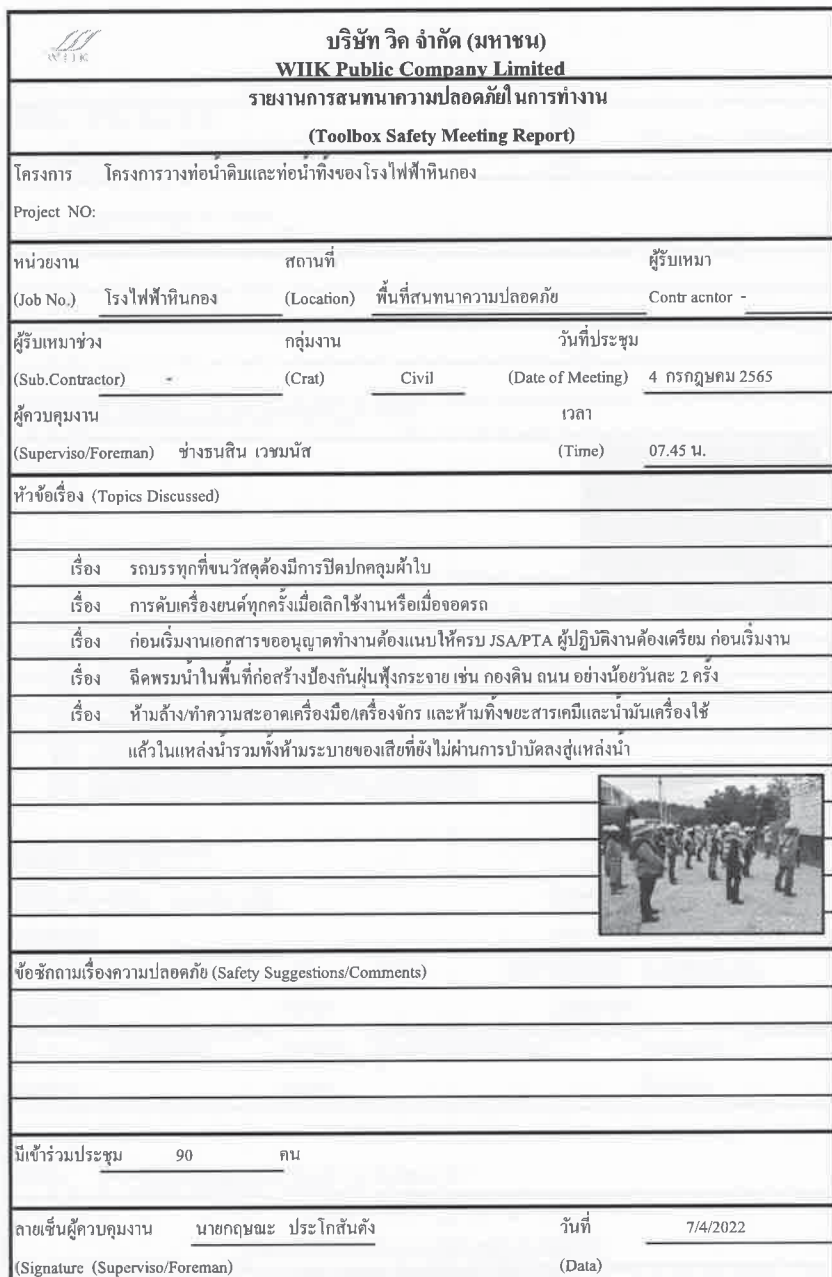 WIIK
บริษัท วิค จำกัด (มหาชน)
WIIK Public Company Limited
รายงานการสนทนาความปลอดภัยในการทำงาน
(Toolbox Safety Meeting Report)
โครงการ โครงการวางท่อน้ำดิบและท่อน้ำทิ้งของโรงไฟฟ้าหินกอง
Project NO:
หน่วยงาน สถานที่ ผู้รับเหมา
(Job No.) โรงไฟฟ้าหินกอง (Location) พื้นที่สนทนาความปลอดภัย Contr acntor -
ผู้รับเหมาช่วง กลุ่มงาน วันที่ประชุม
(Sub.Contractor) - (Crat) Civil (Date of Meeting) 4 กรกฎาคม 2565
ผู้ควบคุมงาน เวลา
(Superviso/Foreman) ช่างธนสิน เวชมนัส (Time) 07.45 น.
หัวข้อเรื่อง (Topics Discussed)
เรื่อง รถบรรทุกที่ขนวัสดุต้องมีการปิดปกคลุมผ้าใบ
เรื่อง การดับเครื่องยนต์ทุกครั้งเมื่อเลิกใช้งานหรือเมื่อจอดรถ
เรื่อง ก่อนเริ่มงานเอกสารขออนุญาตทำงานต้องแนบให้ครบ JSA/PTA ผู้ปฏิบัติงานต้องเตรียม ก่อนเริ่มงาน
เรื่อง ฉีดพรมน้ำในพื้นที่ก่อสร้างป้องกันฝุ่นฟุ้งกระจาย เช่น กองดิน ถนน อย่างน้อยวันละ 2 ครั้ง
เรื่อง ห้ามล้าง/ทำความสะอาดเครื่องมือ/เครื่องจักร และห้ามทิ้งขยะสารเคมีและน้ำมันเครื่องใช้
แล้วในแหล่งน้ำรวมทั้งห้ามระบายของเสียที่ยังไม่ผ่านการบำบัดลงสู่แหล่งน้ำ
ข้อซักถามเรื่องความปลอดภัย (Safety Suggestions/Comments)
มีเข้าร่วมประชุม 90 คน
ลายเซ็นผู้ควบคุมงาน นายกฤษณะ ประโกสันตัง วันที่ 7/4/2022
(Signature (Superviso/Foreman) (Data)